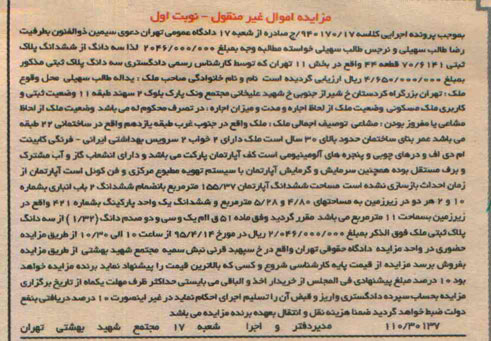 مزایده اموال غیر منقول - نوبت اول
بموجب پرونده اجرایی کلاسه ۹۴۰۱۷۰/۱۷/ج صادره از شعبه ۱۷ دادگاه عمومی تهران دعوی سیمین ذوالفنون بطرفیت
رضا طالب سهیلی و نرجس طالب سهیلی خواسته مطالبه وجه بمبلغ ۲/۰۴۶/۰۰۰/۰۰۰ لذا سه دانگ از ششدانگ پلاک
ثبتی ۷۰/۶۱۴۱ قطعه ۴۴ واقع در بخش ۱۱ تهران که توسط کارشناس رسمی دادگستری سه دانگ پلاک ثبتی مذکور
بمبلغ ۴/۶۵۰/۰۰۰/۰۰۰ ریال ارزیابی گردیده است نام و نام خانوادگی صاحب ملک : یداله طالب سهیلی محل وقوع
ملک : تهران بزرگراه کردستان خ شیراز جنوبی خ شهید علیخانی مجتمع ونک پارک بلوک ۲ سهند طبقه ۱۱ وضعیت ثبتی و
کاربری ملک مسکونی وضعیت ملک از لحاظ اجاره و مدت و میزان اجاره : در تصرف محکوم له می باشد وضعیت ملک از لحاظ
مشاعی یا مفروز بودن : مشاعی توصیف اجمالی ملک : ملک واقع در جنوب غرب طبقه یازدهم واقع در ساختمانی ۲۲ طبقه
می باشد عمر بنای ساختمان حدود بالای ۳۰ سال است ملک دارای ۲ خواب ۲ سرویس بهداشتی ایرانی - فرنگی کابینت
ام دی اف و درهای چوبی و پنجره های آلومینیومی است کف آپارتمان پارکت می باشد و دارای انشعاب گاز و آب مشترک
و برف مستقل بوده همچنین سرمایش و گرمایش آپارتمان با سیستم تهویه مطبوع مرکزی و فن کوئل است آپارتمان از
زمان احداث بازسازی نشده است مساحت ششدانگ آپارتمان ۱۵۵/۳۷ مترمربع بانضمام ششدانگ ۲ باب انباری بشماره
۱۰ و ۲ هر دو در زیرزمین به مساحتهای ۴/۸۰ و ۵/۲۸ مترمربع و ششدانگ یک واحد پارکینگ بشماره ۴۲۱ واقع در
زیرزمین بمساحت ۱۱ مترمربع می باشد مقرر گردید وفق ماده ۵۱ ق اام یک و سی و دو صدم دانگ (۱/۳۲) از سه دانگ
پلاک ثبتی ملک فوق الذکر بمبلغ ۲/۰۴۶/۰۰۰/۰۰۰ ریال در مورخ ۹۵/۴/۱۴ از ساعت ۱۰ الی ۱۰/۳۰ از طریق مزایده
حضوری در واحد مزایده دادگاه حقوقی تهران واقع در خ سپهبد قرنی نبش سمیه مجتمع شهید بهشتی از طریق مزایده
بفروش برسد مزایده از قیمت پایه کارشناسی شروع و کسی که بالاترین قیمت را پیشنهاد نماید برنده مزایده خواهد
بود ۱۰ درصد مبلغ پیشنهادی فی المجلس از خریدار اخذ و الباقی می بایستی حداکثر ظرف مهلت یکماه از تاریخ برگزاری
مزایده بحساب سپرده دادگستری واریز و قبض آن را تسلیم اجرای احکام نماید در غیر اینصورت ۱۰ درصد دریافتی بنفع
دولت ضبط خواهد گردید ضمنا هزینه نقل و انتقال بعهده برنده مزایده می باشد
۱۱۰/۳۰۱۳۷ مدیردفتر و اجرا شعبه ۱۷ مجتمع شهید بهشتی تهران